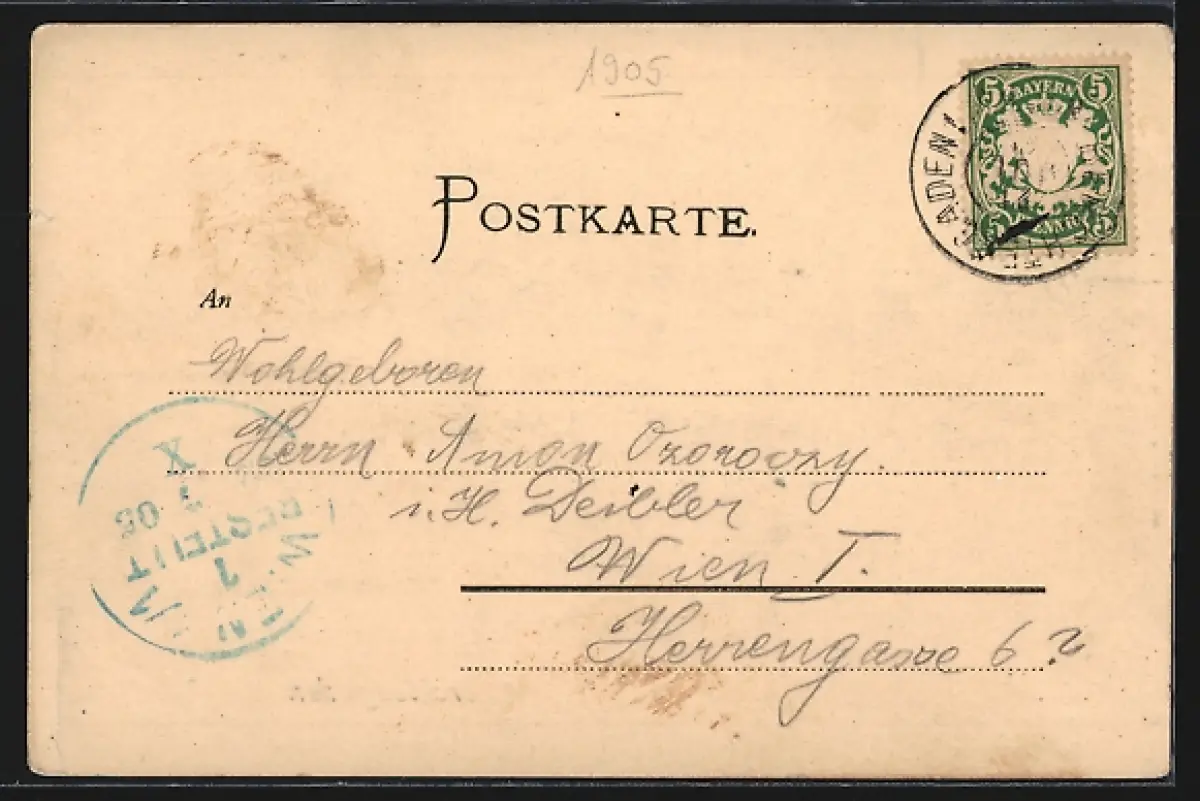 1905
5 BAYERN 5
5 5
POSTKARTE.
An
Wohlgeboren
Herrn Anton
i. H. Deibler
Wien I.
Herrengasse 6?
X
05
BESTELLT
1
WIEN